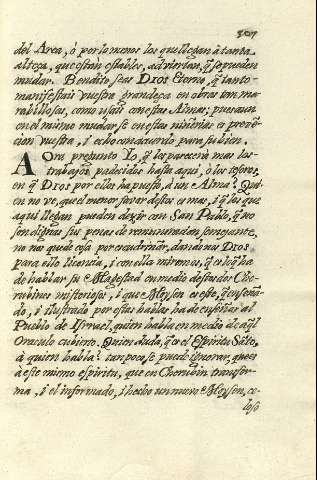 507
del Arca, o por lo menos los que llegan à tanta
alteza, que están estables, adviertan, q̃ se pueden
mudar. Bendito seas DIOS Eterno, q̃ tanto
manifestais vuestra grandeza en obras tan ma-
rabillosas, como vsais con estas Almas; pues aun
en el mismo mudarse en estas niñerias es provi-
dencia vuestra, i echo con acuerdo para su bien.
AOra pregunto Yo, q̃ les pareceria mas los
trabajos padecidos hasta aqui, ò los tesoros,
en q̃ DIOS por ellos ha puesto, à un Alma? Qui-
en no ve, que el menor favor destos es mas, i q̃ las que
aqui llegan pueden dezir con San Pablo, q̃ no
son dignas sus penas de remuneracion semejante,
no nos quede cosa por escudriñar, dandonos DIOS
para ello licencia, i con ella miremos, q̃ es lo q̃ ha
de hablar su Magestad en medio destos dos Che-
rubines misteriosos, i que Moysen es este, q̃ enseña-
do, i ilustrado por estas hablas ha de enseñar al
Pueblo de Isrrael, quien habla en medio de aq̃l
Oraculo cubierto. Quien duda, q̃ es el Espiritu Sãto,
à quien habla? tampoco se puede ignorar, que es
à este mismo espiritu, que en Cherubin transfor-
ma, i el informado, i hecho un nuevo Moysen, ce-
loso